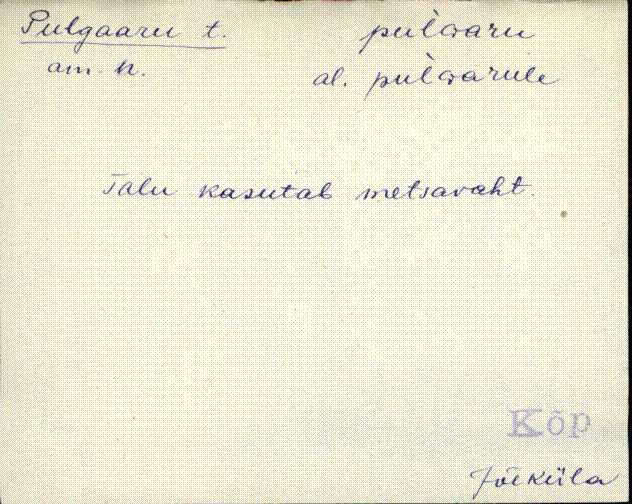 Pulgaaru t. pùlGaru
am. n. al. pùlGarule
Talu kasutab metsavaht.
Kõp
Jõeküla